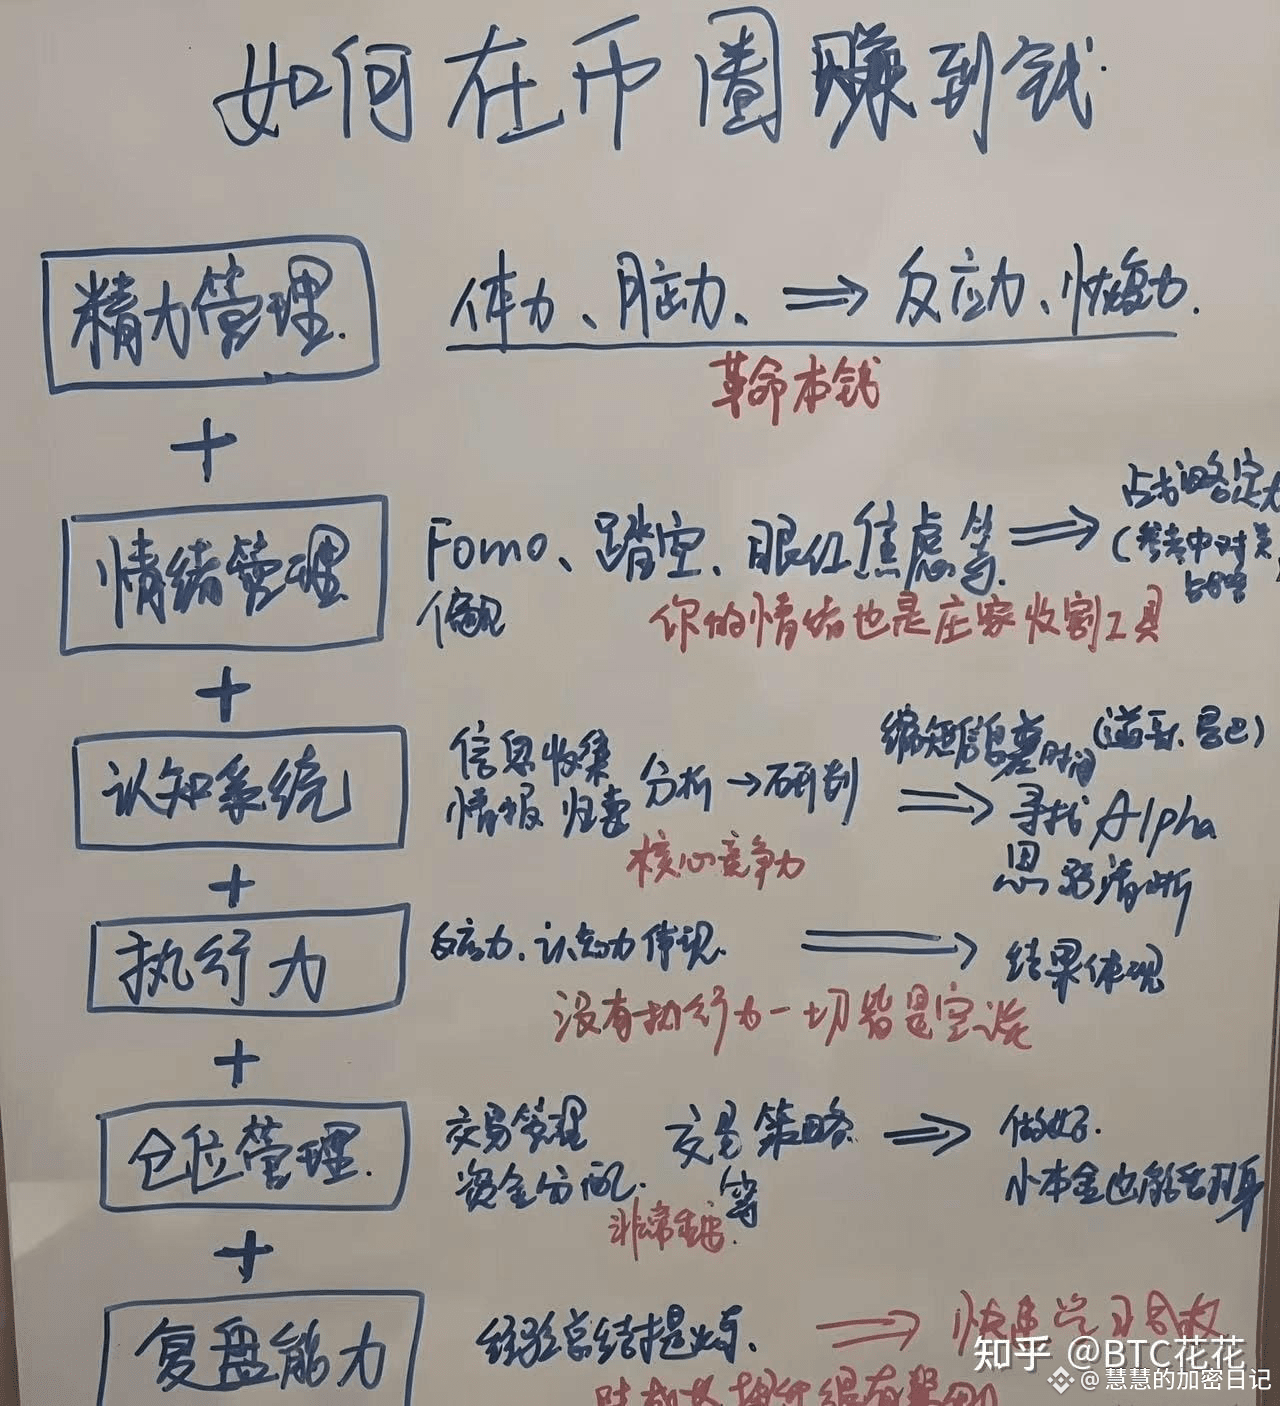 如何在币圈赚到钱.
精力管理.
体力、脑力、⇒ 反应力、恢复力.
革命本钱
+
情绪管理
Fomo、踏空、眼红焦虑等. ⇒
偏见
占战略定
(参考中对美
你的情绪也是庄家收割工具
+
认知系统
信息收集
情报归类
分析→研判 ⇒
缩短信息差时间
寻找Alpha
思路清晰
核心竞争力
+
执行力
反应力、认知力体现. ⇒ 结果体现
没有执行力一切皆是空谈
+
仓位管理.
交易管理
资金分配.
交易策略
等
⇒ 做好.
小本金也能翻身
非常重要.
+
复盘能力
经验总结提炼. ⇒
知乎 @BTC花花
@慧慧的加密日记